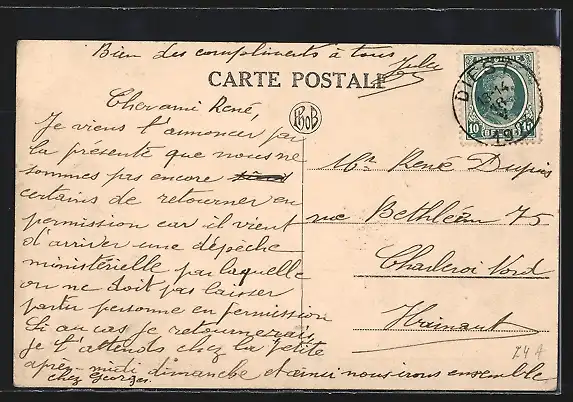 Bien des compliments à tous
Jules
CARTE POSTALE
PhoB
Cher ami René,
Je viens t'annoncer par
la présente que nous ne
sommes pas encore
certains de retourner en
permission car il vient
d'arriver une dépêche
ministérielle par laquelle
on ne doit pas laisser
partir personne en permission
Si au cas je retournerais
je t'attends chez la petite
après-midi dimanche et ainsi nous irons ensemble
chez Georges.
DIEST
10 10
Mr. René Dupis
rue Bethléem 75
Charleroi Nord
Hainaut
74 A